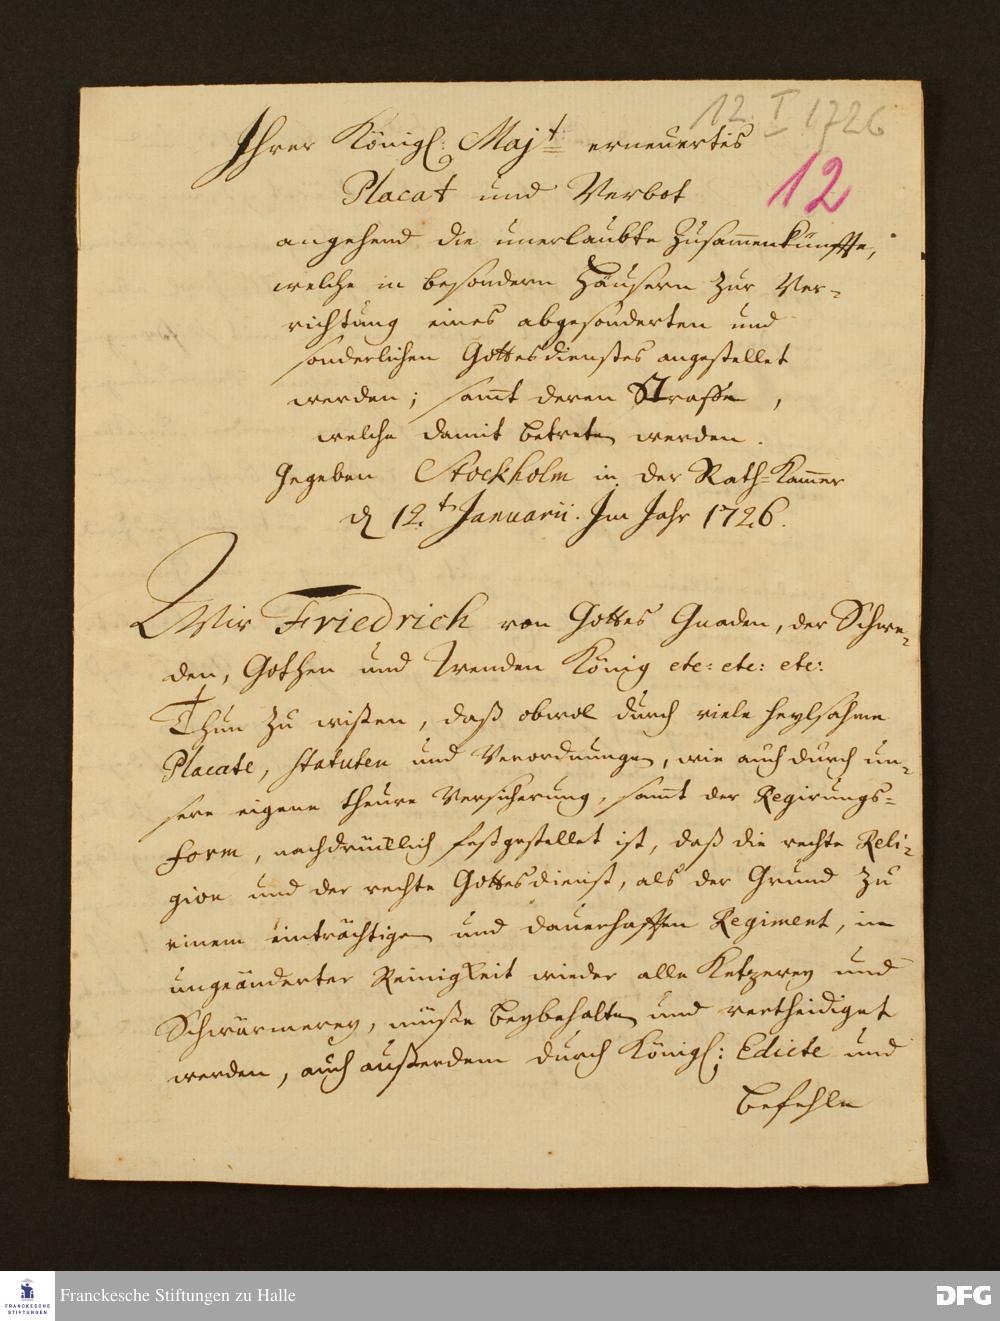 12. I 1726
Ihrer Königl: Majt: erneuertes
12
Placat und Verbot
angehend die unerlaubte Zusammenkünffte,
welche in besondern Häusern zur Ver-
richtung eines abgesonderten und
sonderlichen Gottesdienstes angestellet
werden; samt deren Straffe,
welche damit betreten werden.
Gegeben Stockholm in der Rath-Kammer
d 12.t Januarii. Im Jahr 1726.
Wir Friedrich von Gottes Gnaden, der Schwe-
den, Gothen und Wenden König etc: etc: etc:
Thun zu wißen, daß obwol durch viele heylsahme
Placate, statuten und Verordnungen, wie auch durch un-
sere eigene theure Versicherung, samt der Regirungs-
form, nachdrücklich festgestellet ist, daß die rechte Reli-
gion und der rechte Gottesdienst, als der Grund zu
einem einträchtigen und dauerhafften Regiment, in
ungeänderter Reinigkeit wieder alle Ketzerey und
Schwärmerey, müße beybehalten und vertheidiget
werden, auch außerdem durch Königl: Edicte und
befehle
FRANCKESCHE
STIFTUNGEN
Franckesche Stiftungen zu Halle
DFG